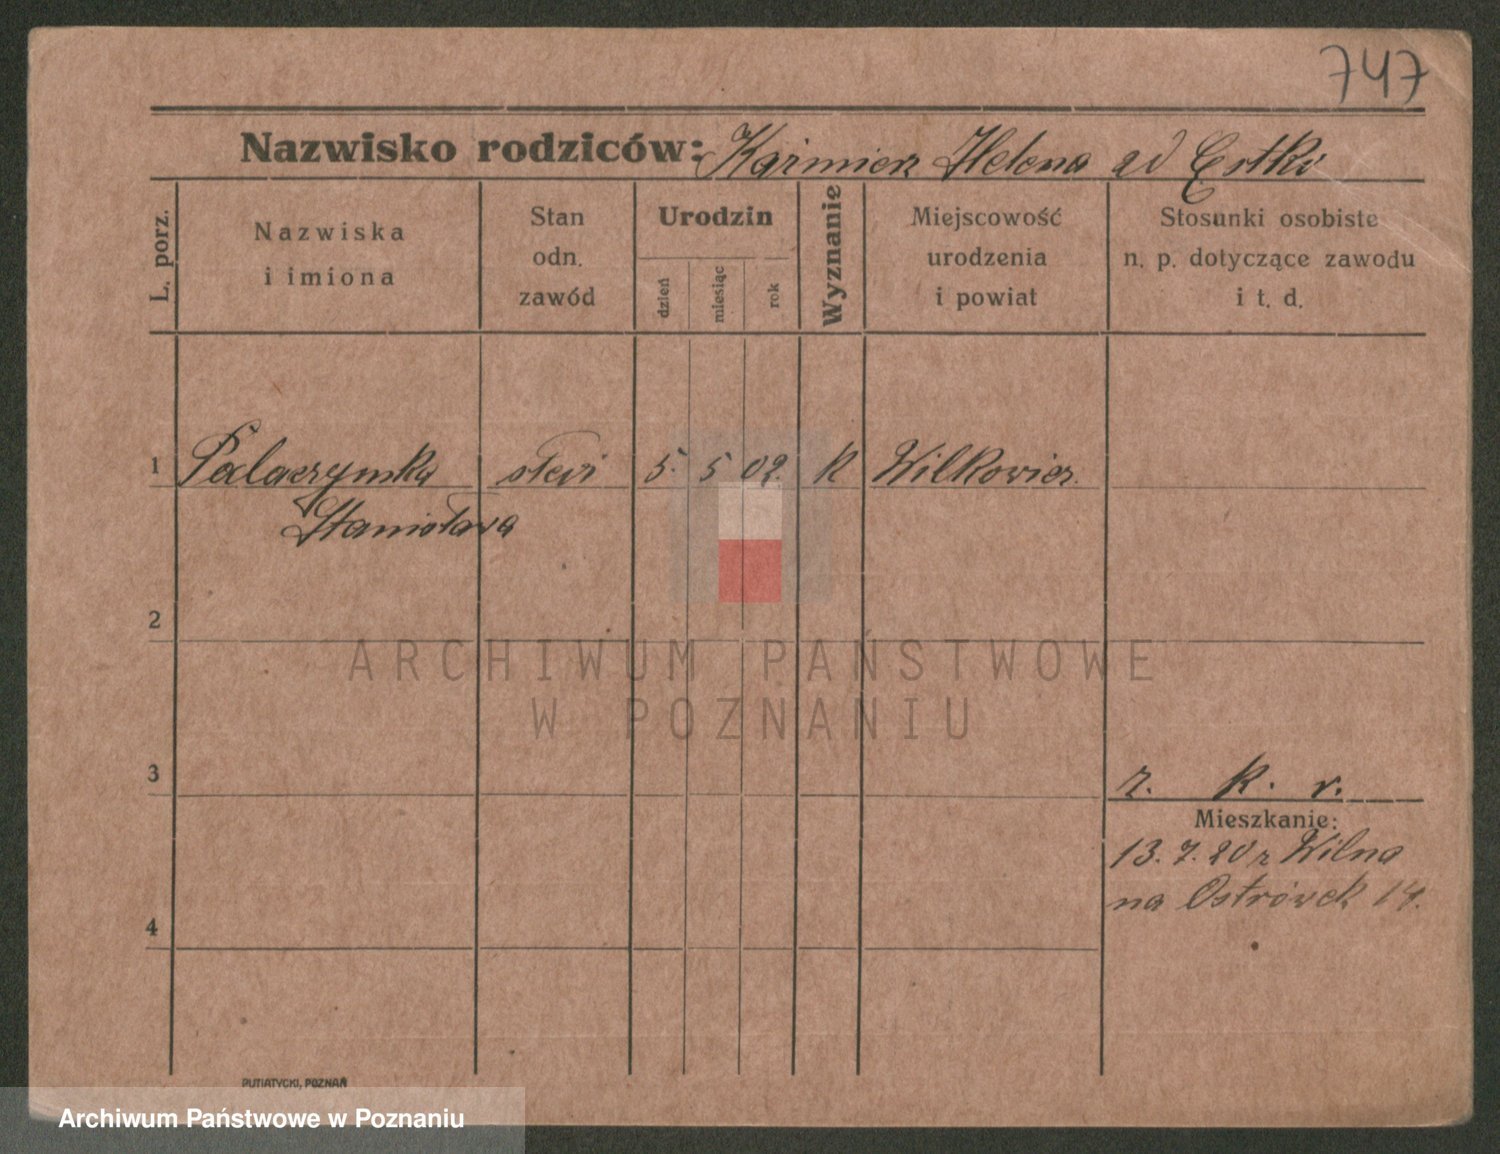 747
Nazwisko rodziców: Kaźmierz Helena zd Estko
L. porz.
Nazwiska i imiona
Stan odn. zawód
Urodzin
dzień
miesiąc
rok
Wyznanie
Miejscowość urodzenia i powiat
Stosunki osobiste n. p. dotyczące zawodu i t. d.
1 Palaczynska 5. 5 02. K Wilkowier
Stanisława
2
ARCHIWUM PAŃSTWOWE
W POZNANIU
3 r. k. r.
Mieszkanie:
13. 7. 20 z Wilna
na Ostrówek 14.
4
PUTIATYCKI, POZNAŃ
Archiwum Państwowe w Poznaniu